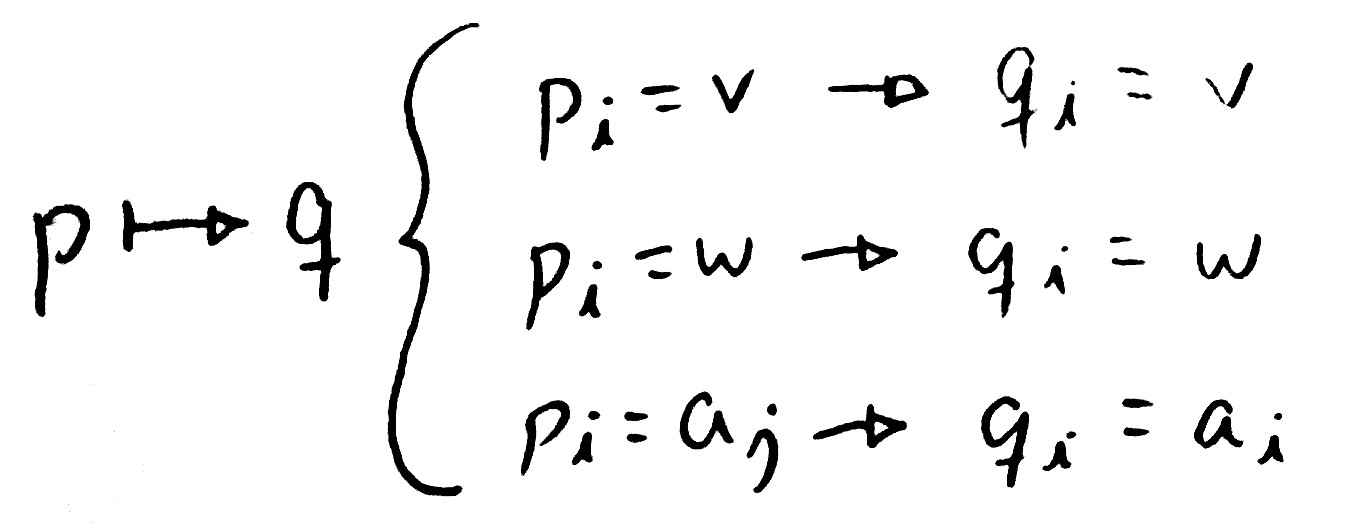 pᵢ = v → qᵢ = v
p ↦ q { pᵢ = w → qᵢ = w
pᵢ = aⱼ → qᵢ = aᵢ